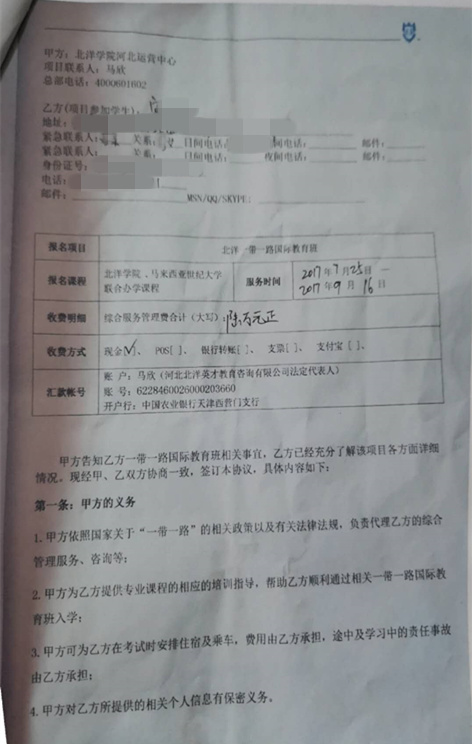 甲方：北洋学院河北运营中心
项目联系人：马欣
总部电话：4000601602
乙方(项目参加学生)：
地址：
紧急联系人： 关系： 日间电话： 间电话： 邮件：
紧急联系人： 关系： 日间电话： 夜间电话： 邮件：
身份证号：
电话：
邮件： MSN/QQ/SKYPE:
报名项目 北洋一带一路国际教育班
报名课程 北洋学院、马来西亚世纪大学 联合办学课程 服务时间 2017年7月25日 — 2017年9月16日
收费明细 综合服务管理费合计（大写）：陆万元正
收费方式 现金[√]、 POS[ ]、 银行转帐[ ]、 支票[ ]、 支付宝 [ ]、
汇款帐号 账 户：马欣（河北北洋英才教育咨询有限公司法定代表人）
账 号：6228460026000203660
开户行：中国农业银行天津西营门支行
甲方告知乙方一带一路国际教育班相关事宜，乙方已经充分了解该项目各方面详细
情况。现经甲、乙双方协商一致，签订本协议，具体内容如下：
第一条：甲方的义务
1.甲方依照国家关于“一带一路”的相关政策以及有关法律法规，负责代理乙方的综合
管理服务、咨询等；
2.甲方为乙方提供专业课程的相应的培训指导，帮助乙方顺利通过相关一带一路国际教
育班入学；
3.甲方可为乙方在考试时安排住宿及乘车，费用由乙方承担，途中及学习中的责任事故
由乙方承担；
4.甲方对乙方所提供的相关个人信息有保密义务。